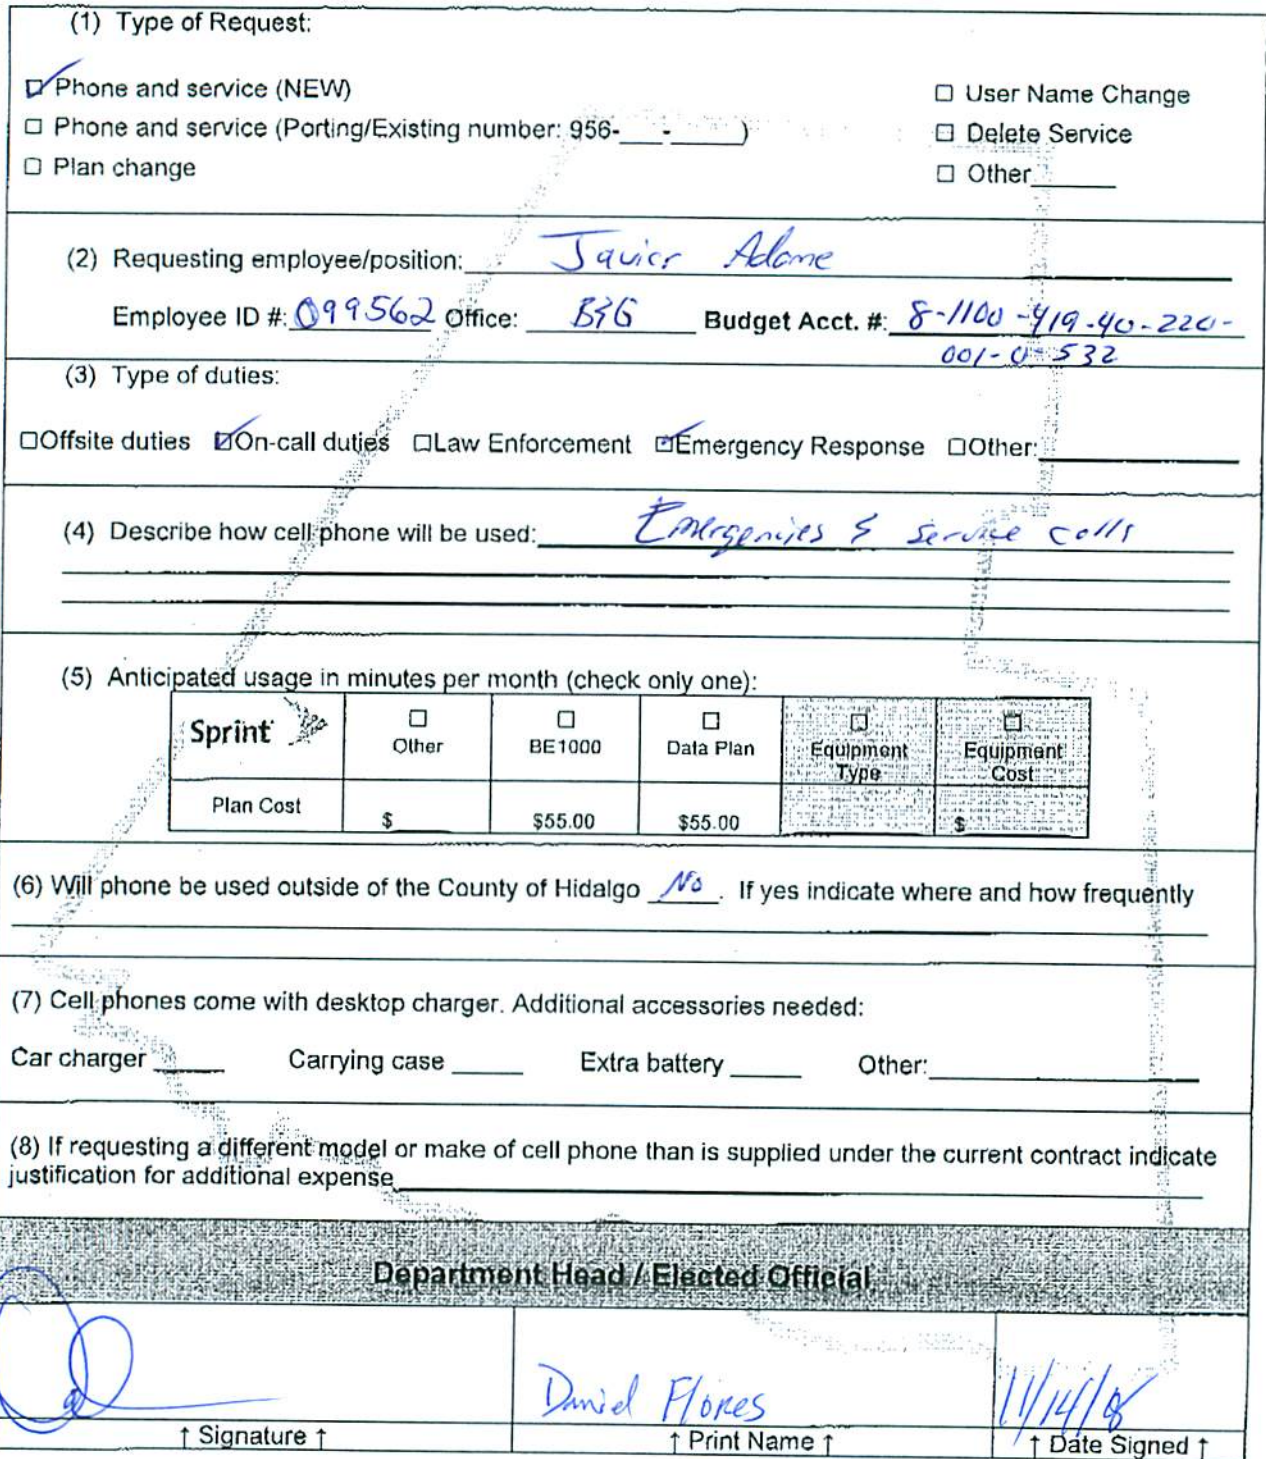 (1) Type of Request:
☑ Phone and service (NEW)
☐ User Name Change
☐ Phone and service (Porting/Existing number: 956-___-_____)
☐ Delete Service
☐ Plan change
☐ Other______
(2) Requesting employee/position: Javier Adame
Employee ID #: 099562 Office: B&G Budget Acct. #: 8-1100-419-40-220-
001-0-532
(3) Type of duties:
☐Offsite duties ☑On-call duties ☐Law Enforcement ☑Emergency Response ☐Other:
(4) Describe how cell phone will be used: Emergencies & service calls
(5) Anticipated usage in minutes per month (check only one):
Sprint ☐ Other ☐ BE1000 ☐ Data Plan ☐ Equipment Type ☐ Equipment Cost
Plan Cost $______ $55.00 $55.00 $
(6) Will phone be used outside of the County of Hidalgo No. If yes indicate where and how frequently
(7) Cell phones come with desktop charger. Additional accessories needed:
Car charger _____ Carrying case _____ Extra battery _____ Other:
(8) If requesting a different model or make of cell phone than is supplied under the current contract indicate
justification for additional expense
Department Head / Elected Official
Daniel Flores 11/14/
↑ Signature ↑ ↑ Print Name ↑ ↑ Date Signed ↑